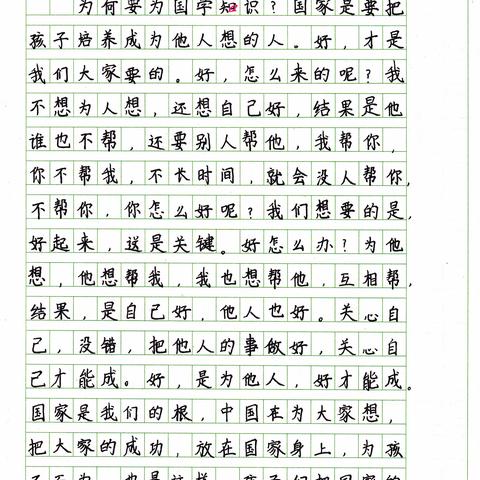 为何要为国学知识？国家是要把
孩子培养成为他人想的人。好，才是
我们大家要的。好，怎么来的呢？我
不想为人想，还想自己好，结果是他
谁也不帮，还要别人帮他，我帮你，
你不帮我，不长时间，就会没人帮你，
不帮你，你怎么好呢？我们想要的是，
好起来，这是关键。好怎么办？为他
想，他想帮我，我也想帮他，互相帮，
结果，是自己好，他人也好。关心自
己，没错，把他人的事做好，关心自
己才能成。好，是为他人，好才能成。
国家是我们的根，中国在为大家想，
把大家的成功，放在国家身上，为孩